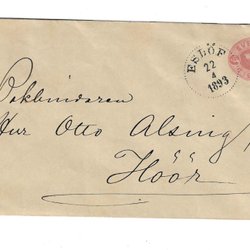 ESLÖF
22
4
1893
Bokbindaren
Herr Otto Alsing
Höör